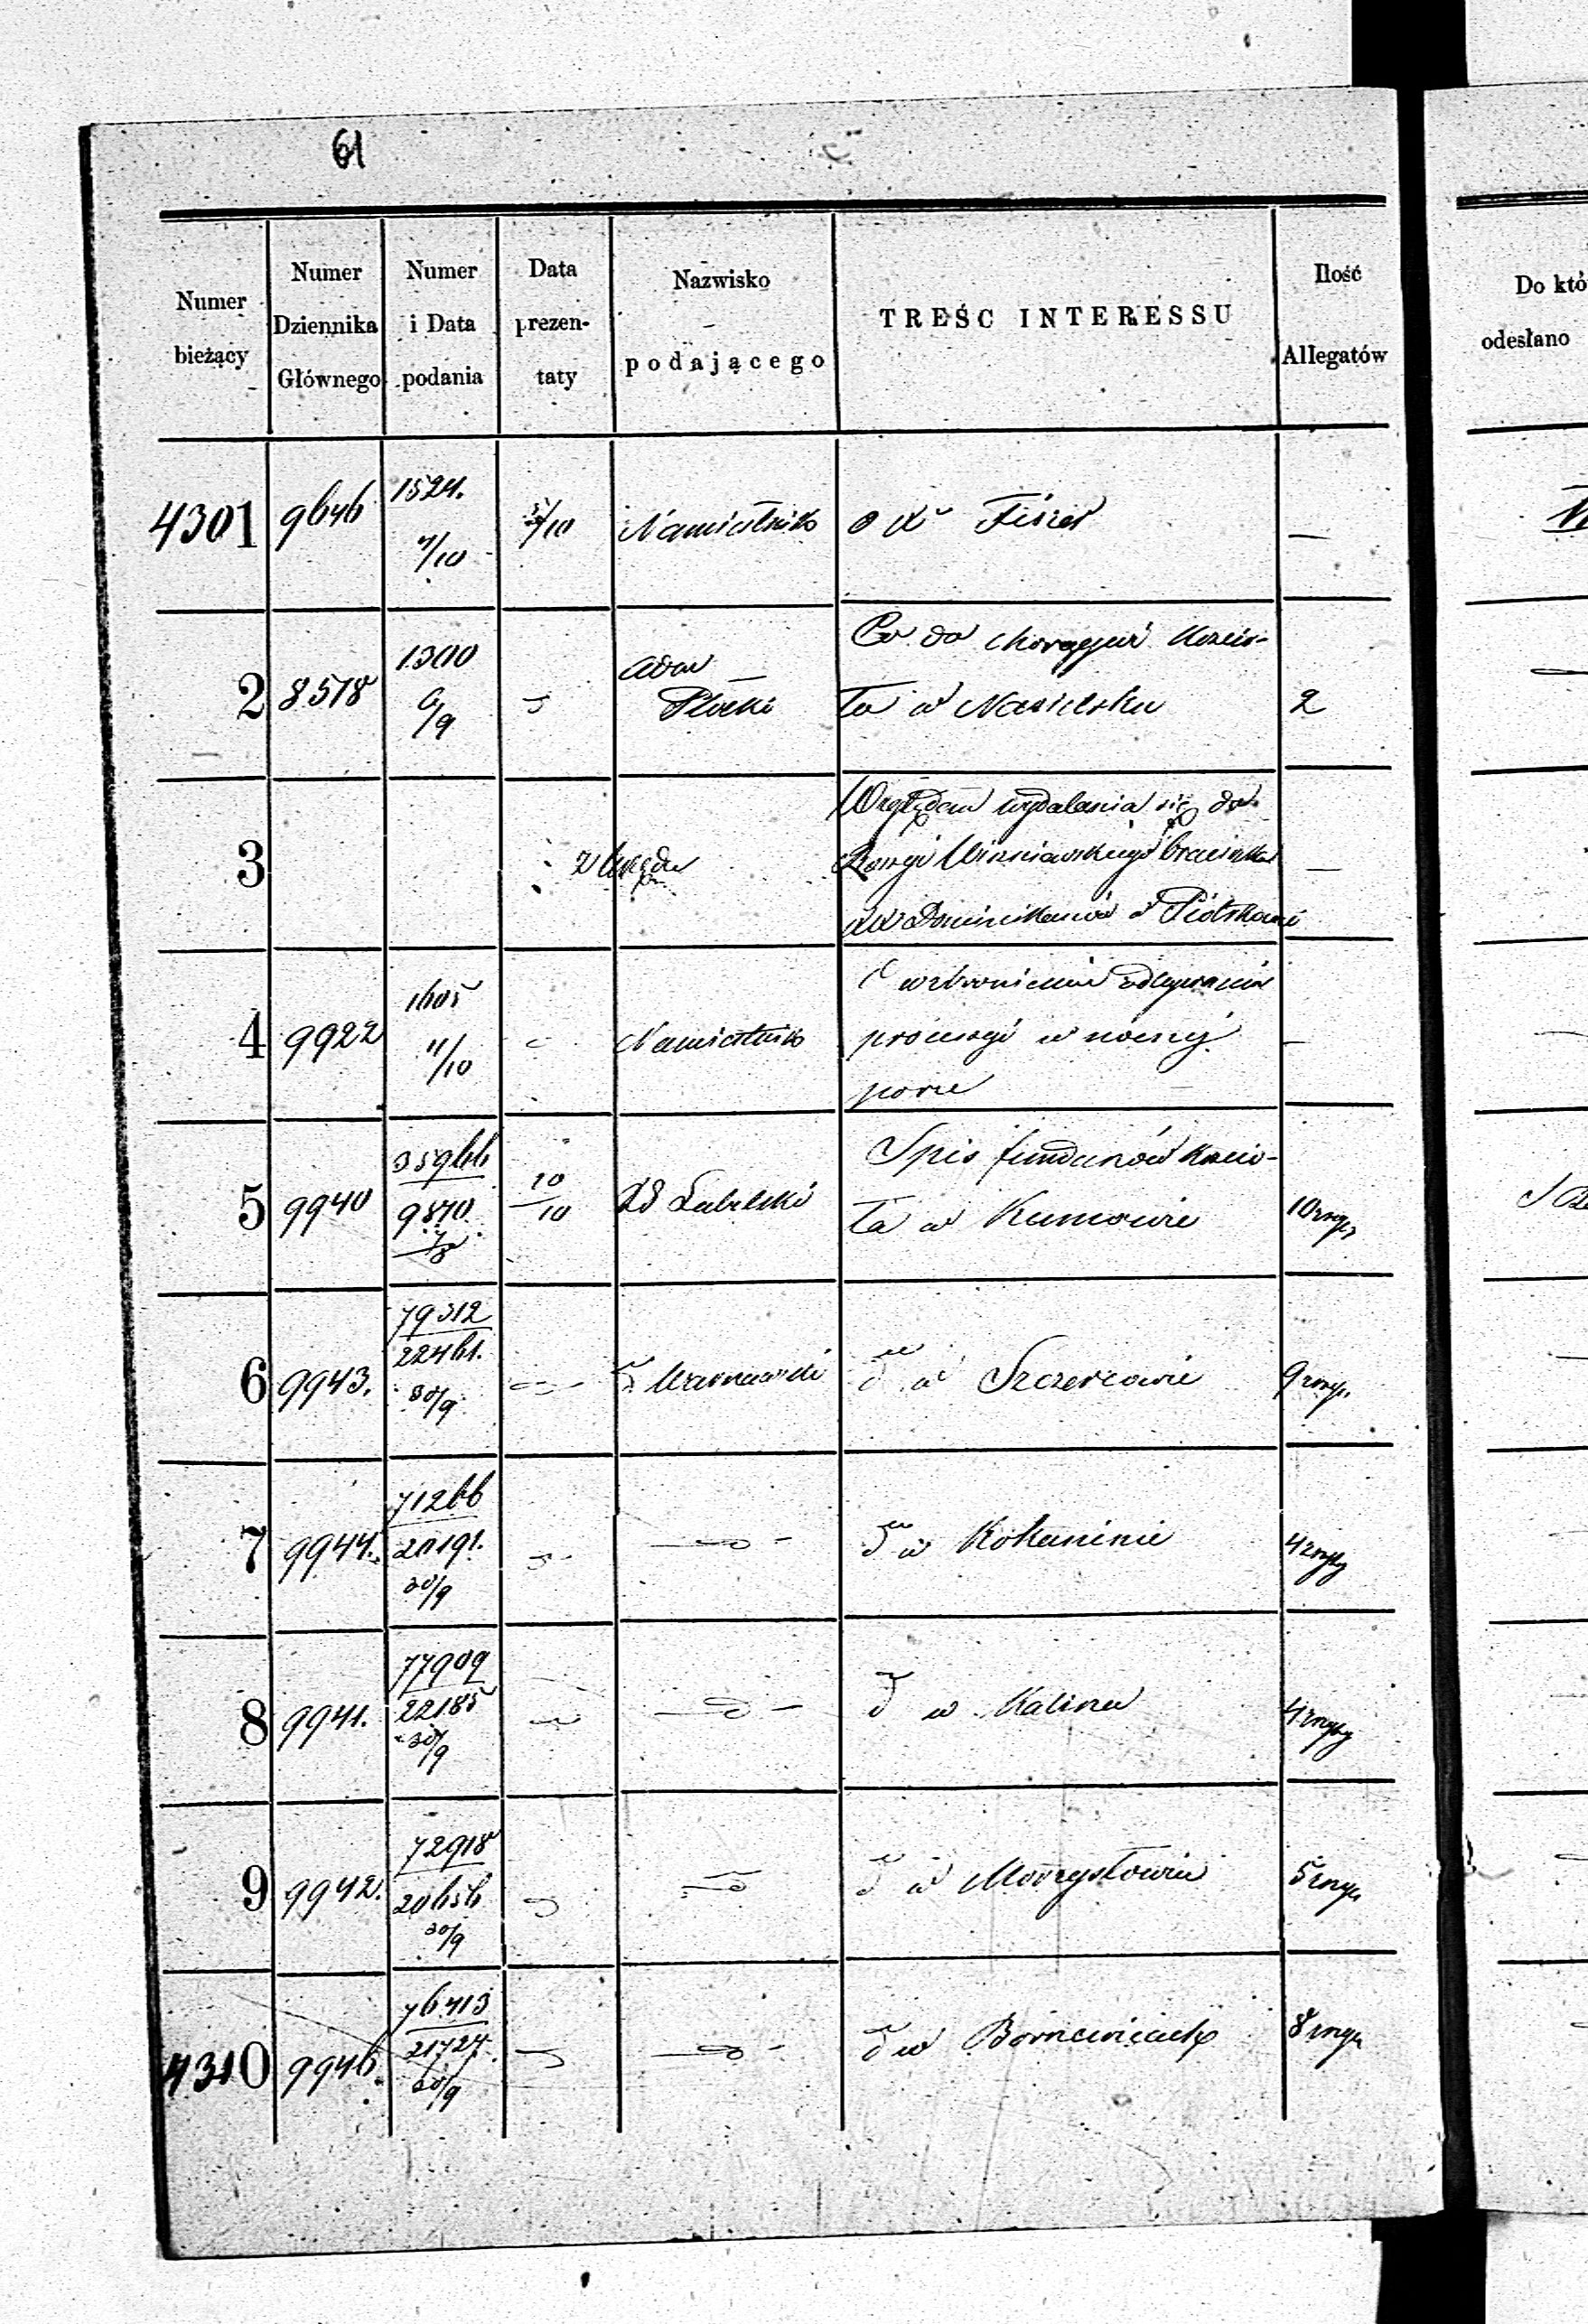 61
Numer bieżący
Numer Dziennika Głównego
Numer i Data podania
Data prezentaty
Nazwisko podającego
TREŚC INTERESSU
Ilość Allegatów
Do któ
odesłano
4301 9646 1524. 11/10 /10 Namiestnik o Xu Fiszer —
2 8578 1300 6/9 Adm Płocki Co do chorągwi kościo-
ła w Nasielsku 2
3 z Urzędu Względem wydalania się do
Rossyi Wiśniawskiego braciszka
XX Dominikanów w Piotrkowie —
4 9922 1605 11/10 Namiestnik O wzbronieniu odbywania
processyi w nocnej
porze —
5 9940 35966 9870 10/10 RG Lubelski Spis funduszów kościo-
ła w Kumowie 10
6 9943. 79312 22461. 30/9 d Warszawski d w Szczercowie 9
7 9944. 71266 20191. 30/9 d w Kokaninie 4
8 9941. 77909 22185 30/9 d w Kaliszu 4
9 9942. 72918 20656 30/9 d w Morzysławiu 5
4310 9946. 76413 21727. 30/9 d w Borszewicach 8